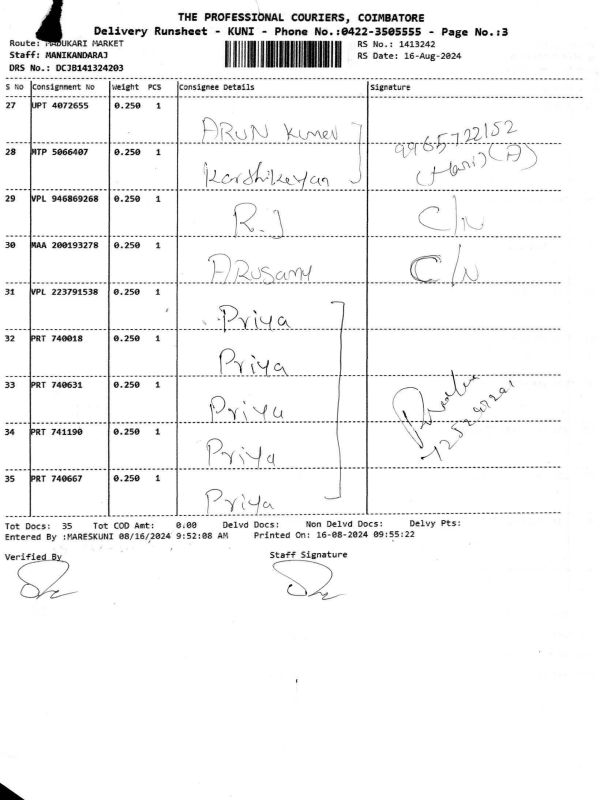 THE PROFESSIONAL COURIERS, COIMBATORE
Delivery Runsheet - KUNI - Phone No.:0422-3505555 - Page No.:3
Route: MADUKARI MARKET RS No.: 1413242
Staff: MANIKANDARAJ RS Date: 16-Aug-2024
DRS No.: DCJB141324203
S No Consignment No Weight PCS Consignee Details Signature
27 UPT 4072655 0.250 1 ARUN Kumar 9965722152
28 MTP 5066407 0.250 1 Karthikeyan (Hari) (A)
29 VPL 946869268 0.250 1 R.J C/N
30 MAA 200193278 0.250 1 ARUSamy C/N
31 VPL 223791538 0.250 1 Priya
32 PRT 740018 0.250 1 Priya
33 PRT 740631 0.250 1 Priya
34 PRT 741190 0.250 1 Priya
35 PRT 740667 0.250 1 Priya
Tot Docs: 35 Tot COD Amt: 0.00 Delvd Docs: Non Delvd Docs: Delvy Pts:
Entered By :MARESKUNI 08/16/2024 9:52:08 AM Printed On: 16-08-2024 09:55:22
Verified By Staff Signature